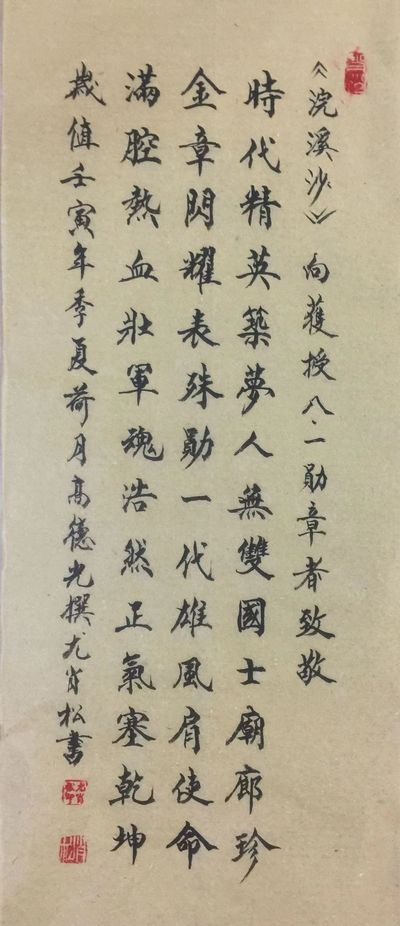 《浣溪沙》向獲授八·一勛章者致敬
時代精英築夢人無雙國士廟廊珍
金章閃耀表殊勛一代雄風肩使命
滿腔熱血壯軍魂浩然正氣塞乾坤
歲值壬寅年季夏荷月高德光撰尤肖松書